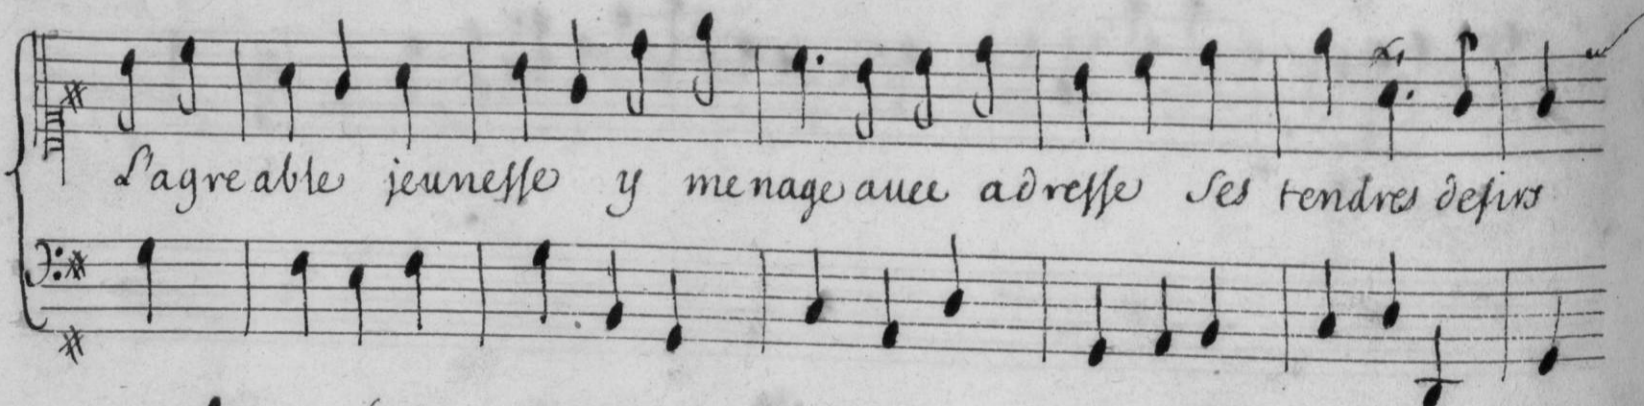 L'agreable jeunesse y menage avec adresse ses tendres desirs